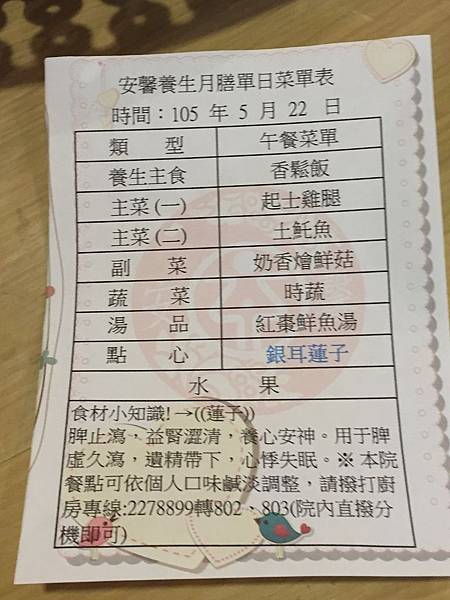 安馨養生月膳單日菜單表
時間：105 年 5 月 22 日
類 型 午餐菜單
養生主食 香鬆飯
主菜(一) 起士雞腿
主菜(二) 土魠魚
副 菜 奶香燴鮮菇
蔬 菜 時蔬
湯 品 紅棗鮮魚湯
點 心 銀耳蓮子
水 果
食材小知識!→((蓮子))
脾止瀉，益腎澀清，養心安神。用于脾
虛久瀉，遺精帶下，心悸失眠。※本院
餐點可依個人口味鹹淡調整，請撥打廚
房專線:2278899轉802、803(院內直撥分
機即可)